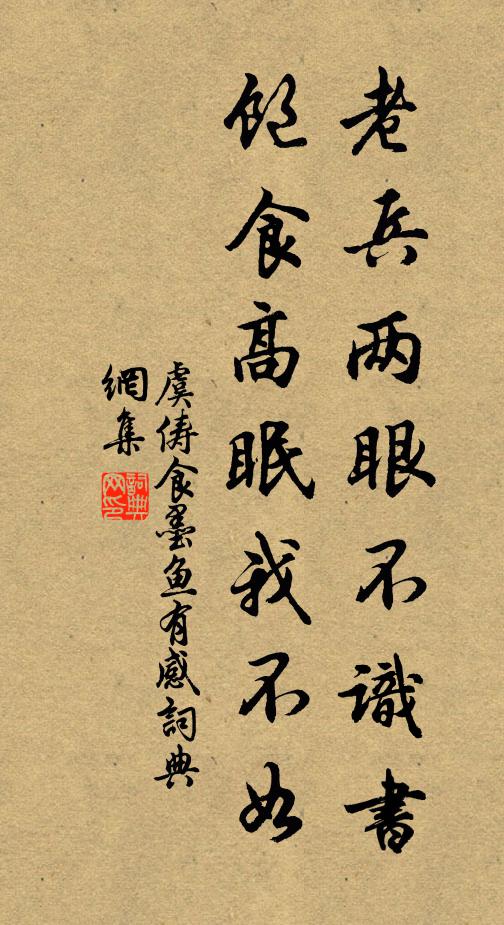 老兵两眼不識書
飽食高眠我不如
虞俦食墨鱼有感詞典
網集
詞典
网印